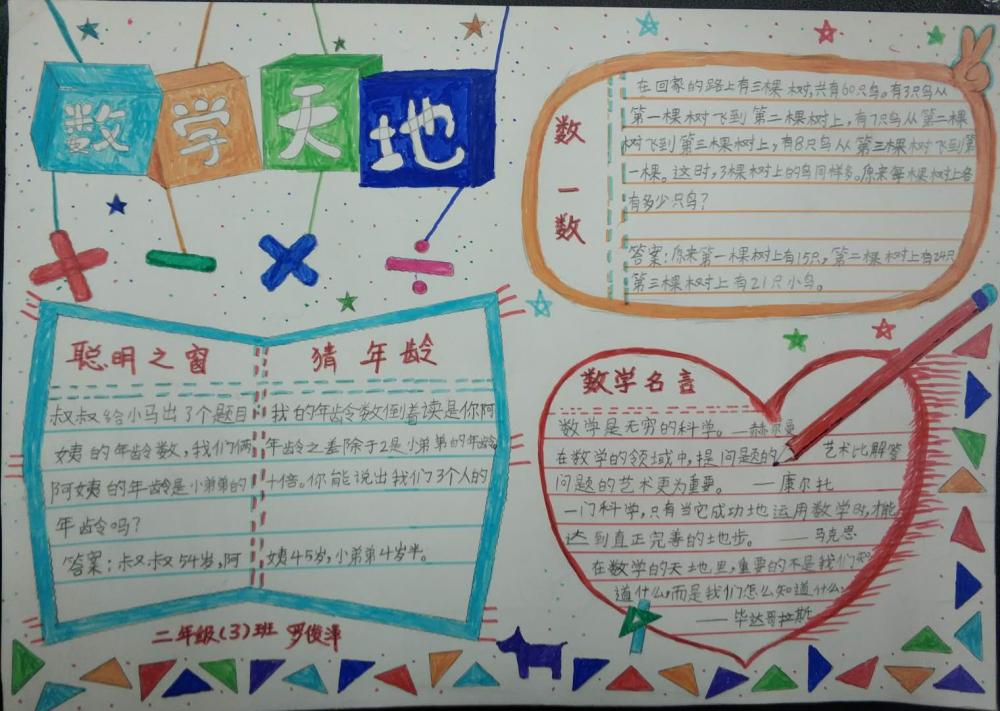 数学天地
数一数
在回家的路上有三棵树,共有60只鸟。有3只鸟从
第一棵树飞到第二棵树上,有7只鸟从第二棵
树飞到第三棵树上,有8只鸟从第三棵树飞到第
一棵。这时,3棵树上的鸟同样多。原来每棵树上各
有多少只鸟?
答案:原来第一棵树上有15只,第二棵树上有24只
第三棵树上有21只小鸟。
聪明之窗 猜年龄
叔叔给小马出了个题目 我的年龄数倒着读是你阿
姨的年龄数,我们俩 年龄之差除于2是小弟弟的年龄
阿姨的年龄是小弟弟的 十倍。你能说出我们3个人的
年龄吗?
答案:叔叔54岁,阿 姨45岁,小弟弟4岁半。
二年级(3)班 罗俊
数学名言
数学是无穷的科学。—赫尔曼
在数学的领域中,提问题的 艺术比解答
问题的艺术更为重要。 —康尔托
一门科学,只有当它成功地运用数学时,才能
达到真正完善的地步。 —马克思
在数学的天地里,重要的不是我们知
道什么,而是我们怎么知道什么
—毕达哥拉斯